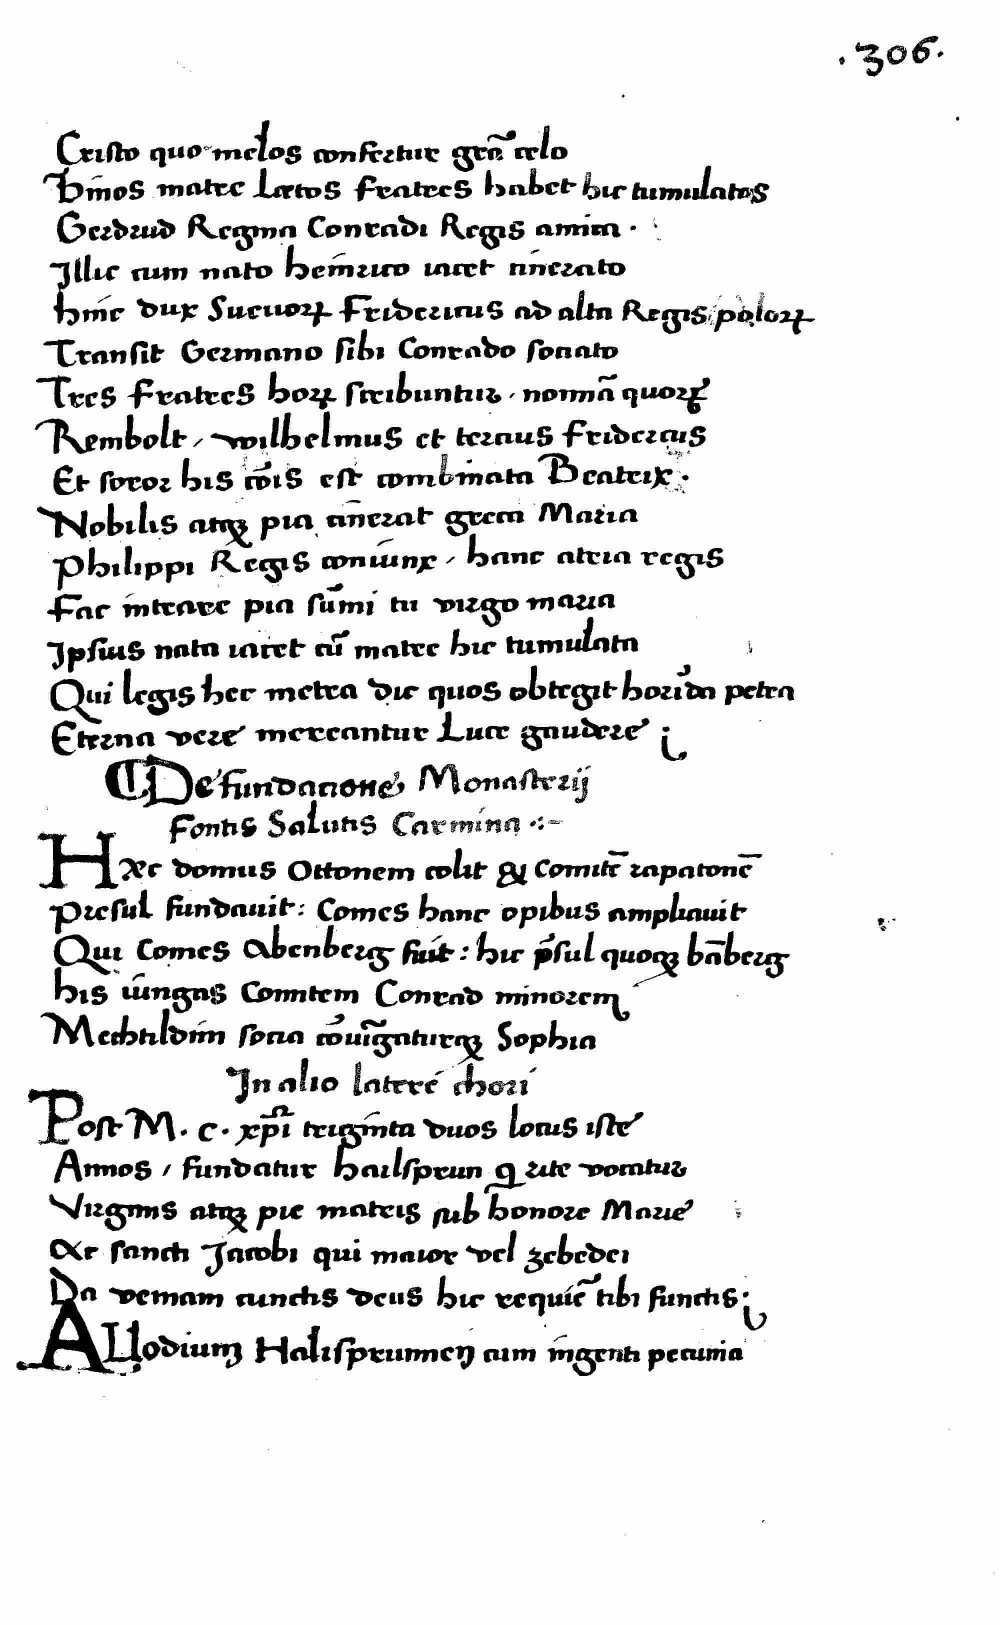 .306.
Cristo quo melos confertur grã celo
Hiños matre Lætos fratres habet hic tumulatos
Gerdrud Regina Conradi Regis amica.
Jllic cum nato heinrico iacet cin̄erato
hinc dux Suevoꝝ Fridericus ad alta Regis poloꝝ
Transit Germano sibi Conrado sociato
Tres fratres horꝝ scribuntur, nomĩa quoꝝ
Rembolt, wilhelmus et tercius fridericus
Et soror his cõis est combinata Beatrix.
Nobilis atqꝫ pia cin̄erat greca Maria
Philippi Regis coniunx, hanc atria regis
Fac intrare pia sũmi tu virgo maria
Jpsius nata iacet cũ matre hic tumulata
Qui legis hec metra dic quos obtegit horrida petra
Eterna vere mereantur Luce gaudere;
De fundacione Monasterij
Fontis Salutis Carmina .:-
Hæc domus Ottonem colit & Comitē rapatonē
Presul fundavit: Comes hanc opibus ampliauit
Qui Comes Abenberg fuit: hic p̃sul quoqꝫ bābergꝫ
his iũngas Comitem Conrad minorem
Mechtildim socia cõuĩgaturqꝫ Sophia
Jn alio latere chori
Post M. C. xp̃i triginta duos locus iste
Annos, fundatur hailsprun q̃ rite vocatur
Virginis atqꝫ pie matris sub honore Marie
Ac sancti Jacobi qui maior vel zebedei
Da veniam cunctis deus hic requiẽ tibi functis;
ALlodium Halisprunnen cum ingenti pecunia